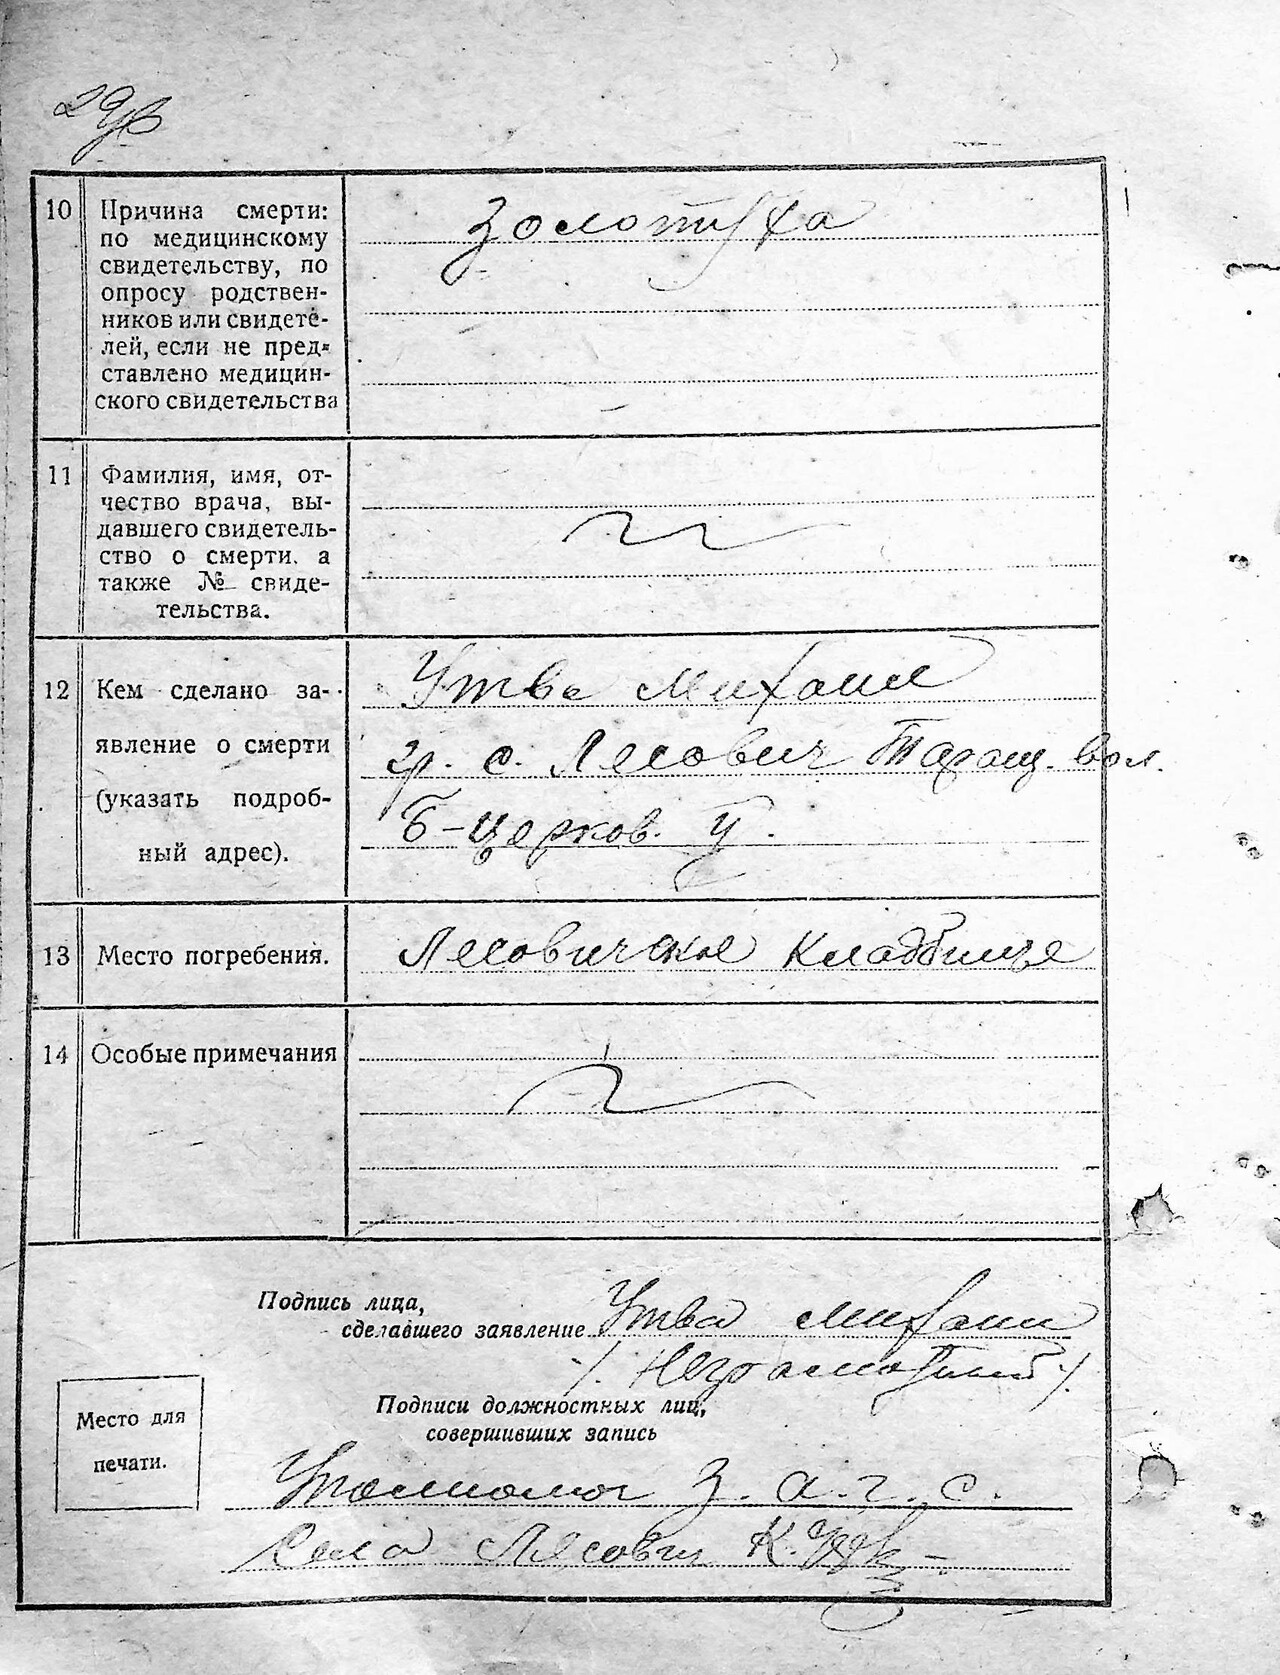 29об
10
Причина смерти:
по медицинскому
свидетельству, по
опросу родствен-
ников или свидете-
лей, если не пред-
ставлено медицин-
ского свидетельства
Золотуха
11
Фамилия, имя, от-
чество врача, вы-
давшего свидетель-
ство о смерти, а
также № свиде-
тельства.
12
Кем сделано за-
явление о смерти
(указать подроб-
ный адрес).
Утва Михаил
гр. с. Лясович Таращ. вол.
Б-Церков. у.
13
Место погребения.
Лясовичское Кладбище
14
Особые примечания
Подпись лица,
сделавшего заявление Утва Михаил
/. Неграмотный ./
Подписи должностных лиц,
совершивших запись
Место для
печати.
Уполномоч З. а. г. с.
Села Лясович К.